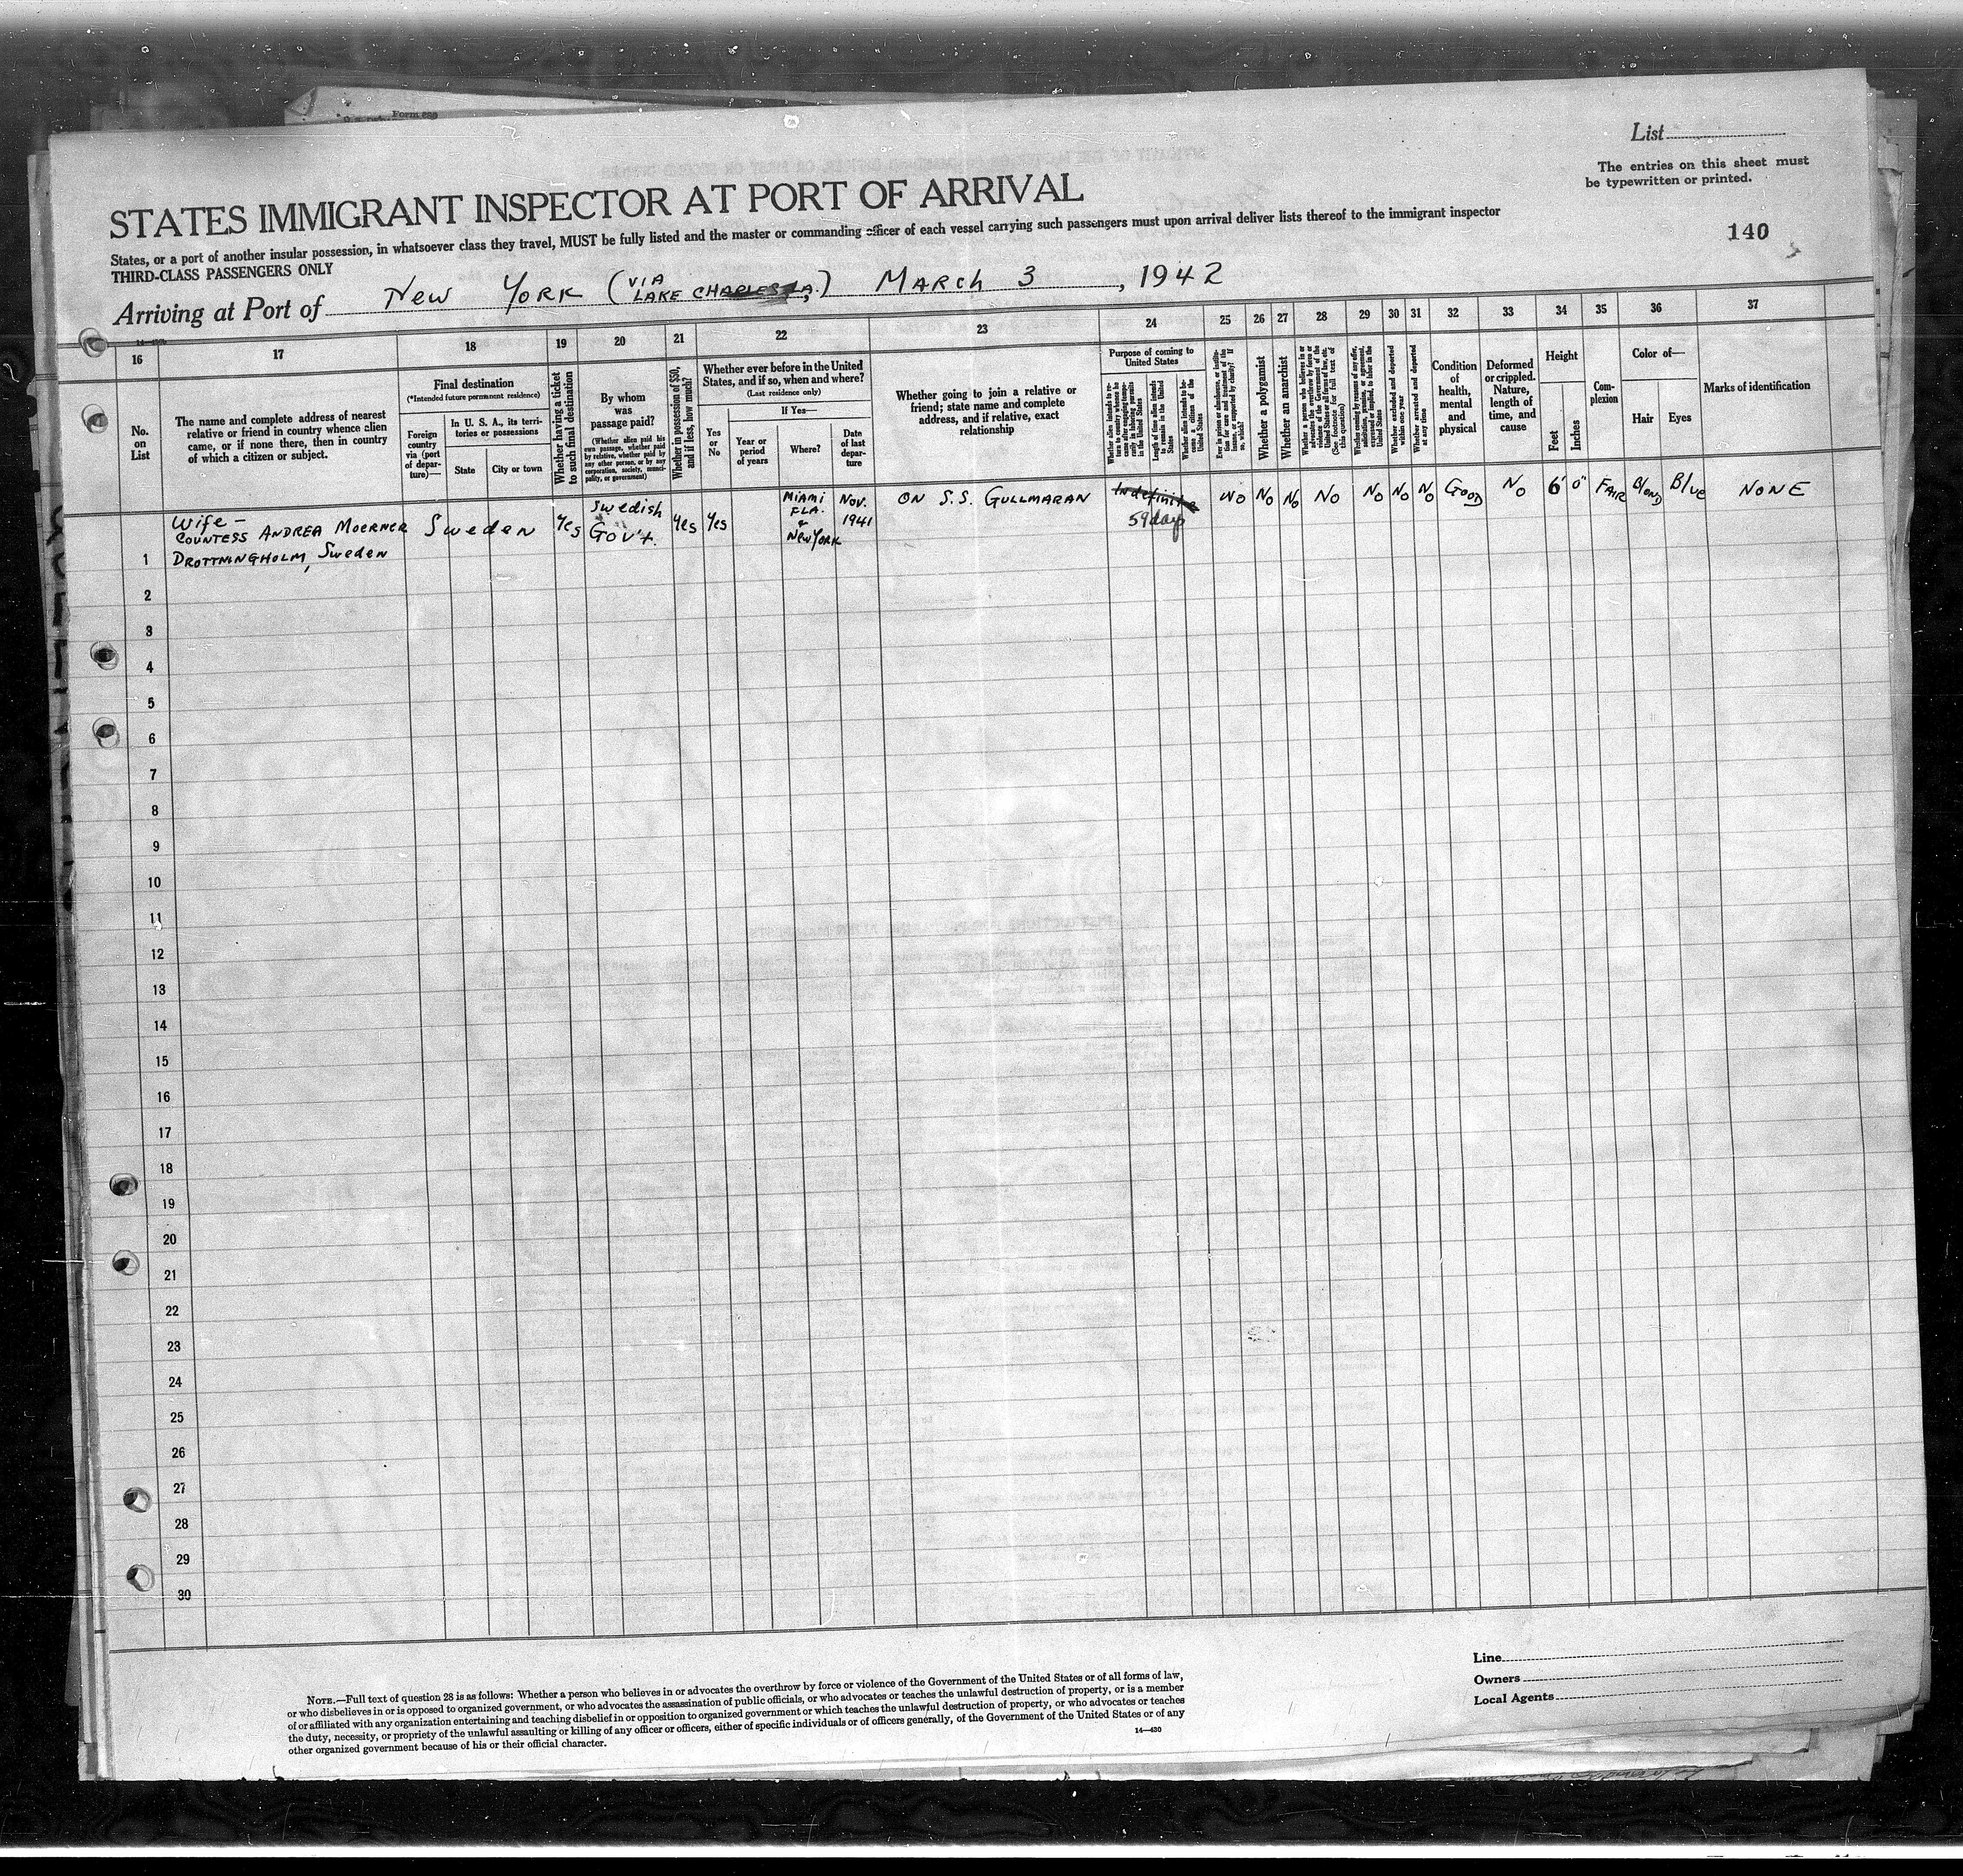 Form 630
List
The entries on this sheet must
be typewritten or printed.
140
STATES IMMIGRANT INSPECTOR AT PORT OF ARRIVAL
States, or a port of another insular possession, in whatsoever class they travel, MUST be fully listed and the master or commanding officer of each vessel carrying such passengers must upon arrival deliver lists thereof to the immigrant inspector
THIRD-CLASS PASSENGERS ONLY
Arriving at Port of New York (VIA LAKE CHARLES, LA.) March 3, 1942
16 17 18 19 20 21 22 23 24 25 26 27 28 29 30 31 32 33 34 35 36 37
No.
on
List
The name and complete address of nearest
relative or friend in country whence alien
came, or if none there, then in country
of which a citizen or subject.
Final destination
(*Intended future permanent residence)
Foreign
country
via (port
of depar-
ture)—
In U. S. A., its terri-
tories or possessions
State
City or town
Whether having a ticket
to such final destination
By whom
was
passage paid?
(Whether alien paid his
own passage, whether paid
by relative, whether paid by
any other person, or by any
corporation, society, munici-
pality, or government)
Whether in possession of $50,
and if less, how much?
Whether ever before in the United
States, and if so, when and where?
(Last residence only)
Yes
or
No
If Yes—
Year or
period
of years
Where?
Date
of last
depar-
ture
Whether going to join a relative or
friend; state name and complete
address, and if relative, exact
relationship
Purpose of coming to
United States
Whether alien intends to re-
turn to country whence he
came after engaging tempo-
rarily in laboring pursuits
in the United States
Length of time alien intends
to remain in the United
States
Whether alien intends to be-
come a citizen of the
United States
Ever in prison or almshouse, or institu-
tion for care and treatment of the
insane, or supported by charity? If
so, which?
Whether a polygamist
Whether an anarchist
Whether a person who believes in or
advocates the overthrow by force or
violence of the Government of the
United States or all forms of law, etc.
(See footnote for full text of
this question)
Whether coming by reasons of any offer,
solicitation, promise, or agreement,
expressed or implied, to labor in the
United States
Whether excluded and deported
within one year
Whether arrested and deported
at any time
Condition
of
health,
mental
and
physical
Deformed
or crippled.
Nature,
length of
time, and
cause
Height
Feet
Inches
Com-
plexion
Color of—
Hair
Eyes
Marks of identification
Wife –
COUNTESS ANDREA MOERNER
DROTTNINGHOLM, Sweden
Sweden
Yes
Swedish
Gov't.
Yes
Yes
MIAMI
FLA.
&
New York
Nov.
1941
ON S.S. GULLMARAN
Indefinite
59 days
NO
No
No
No
No
No
No
GOOD
No
6'
0"
FAIR
BlOND
Blue
NONE
1
2
3
4
5
6
7
8
9
10
11
12
13
14
15
16
17
18
19
20
21
22
23
24
25
26
27
28
29
30
Line
Owners
Local Agents
NOTE.—Full text of question 28 is as follows: Whether a person who believes in or advocates the overthrow by force or violence of the Government of the United States or of all forms of law,
or who disbelieves in or is opposed to organized government, or who advocates the assassination of public officials, or who advocates or teaches the unlawful destruction of property, or is a member
of or affiliated with any organization entertaining and teaching disbelief in or opposition to organized government or which teaches the unlawful destruction of property, or who advocates or teaches
the duty, necessity, or propriety of the unlawful assaulting or killing of any officer or officers, either of specific individuals or of officers generally, of the Government of the United States or of any
other organized government because of his or their official character.
14—430